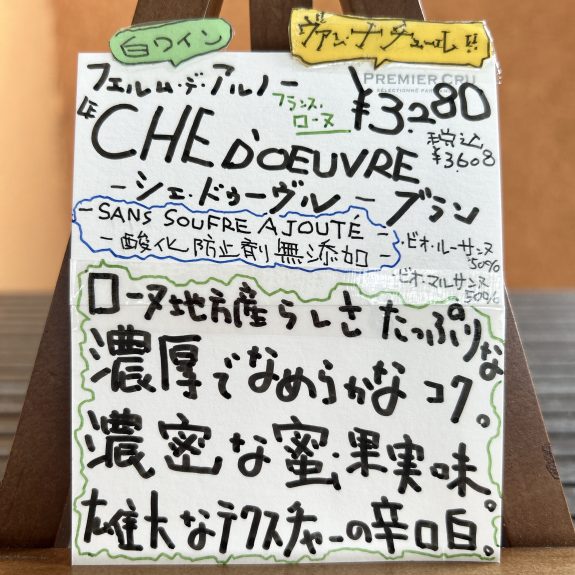 白ワイン
ヴァン・ナチュール!!
PREMIER CRU
フェルム・デ・アルノー
フランス・
ローヌ
¥3.280
税込
¥3608
"CHE D'OEUVRE
-シェ・ドゥーヴル- ブラン
-SANS SOUFRE AJOUTÉ-
-酸化防止剤無添加-
・ビオ・ルーサンヌ
50%
・ビオ・マルサンヌ
50%
ローヌ地方産らしさたっぷりな
濃厚でなめらかなコク。
濃密な蜜・果実味。
雄大なテクスチャーの辛口白。